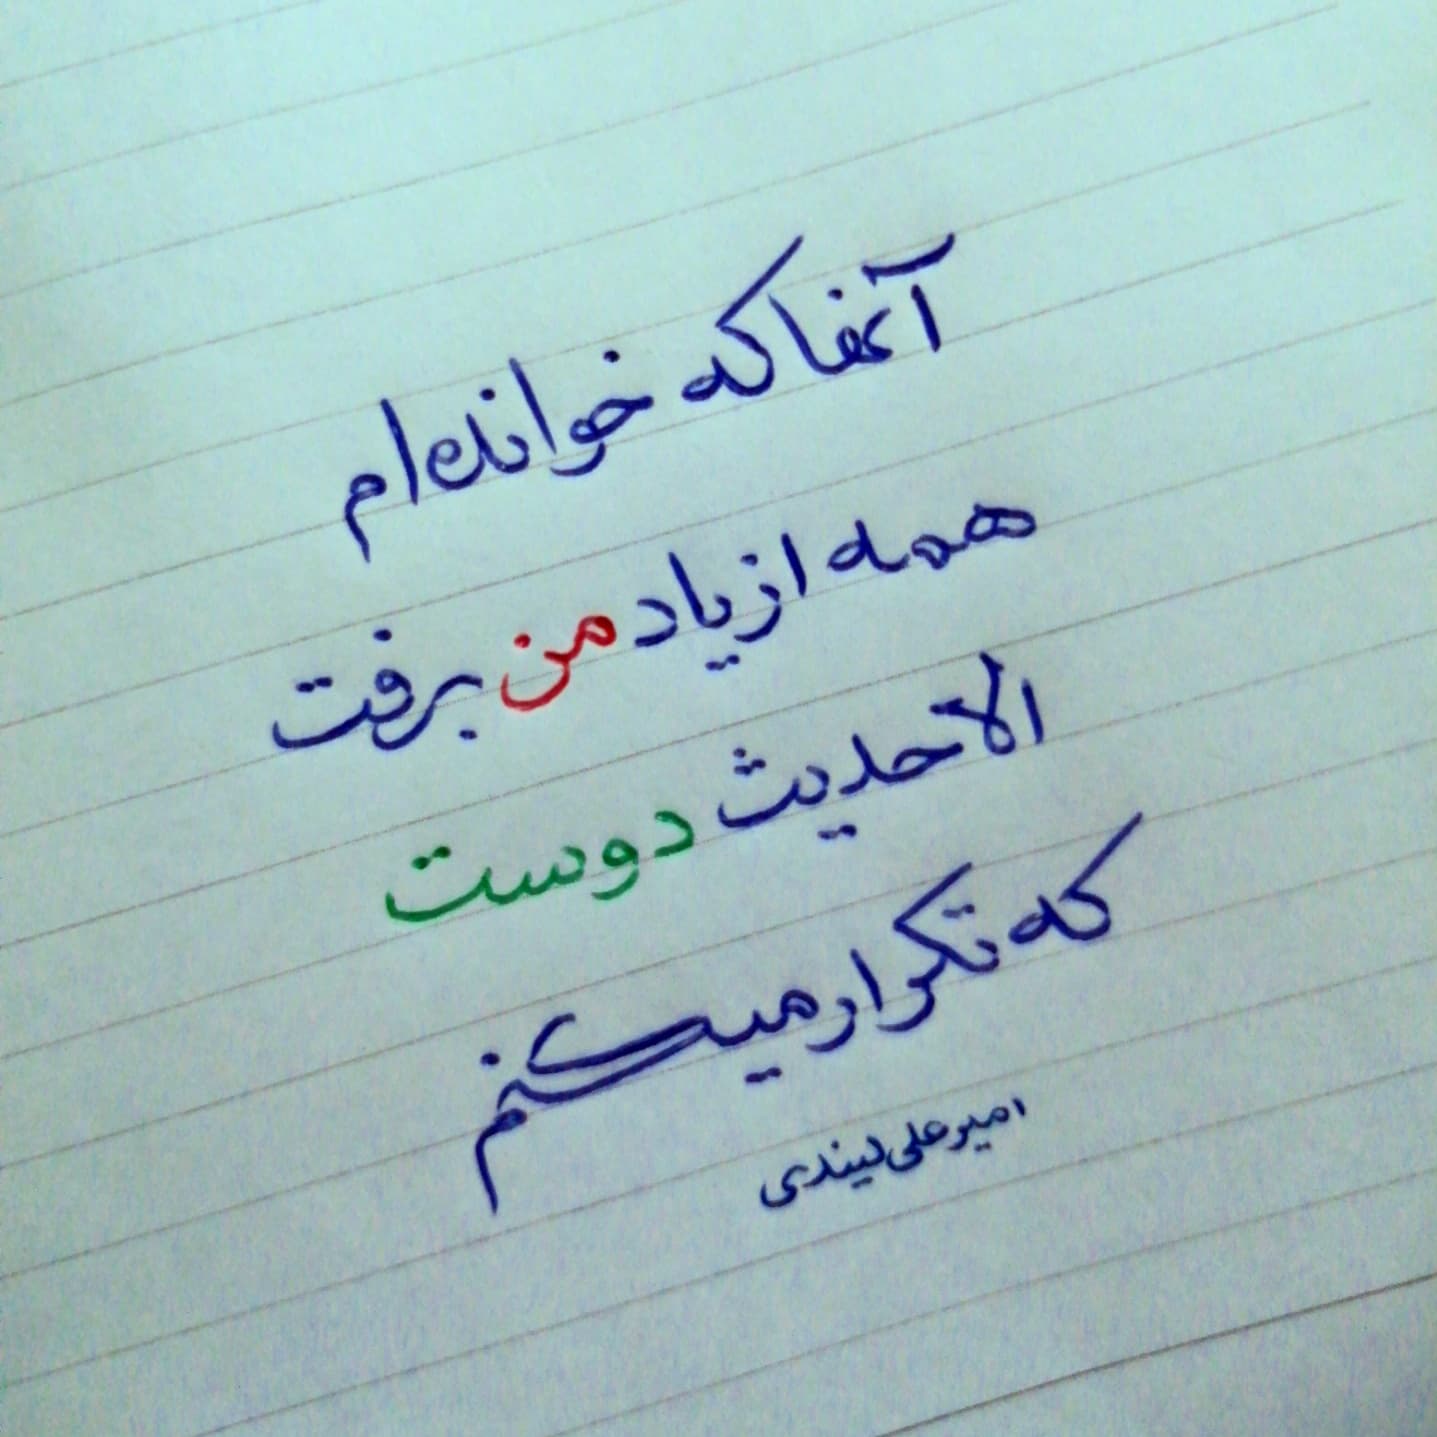 آنها که خوانده ام
همه از یاد من برفت
الا حدیث دوست
که تکرار میکنم
امیرعلی